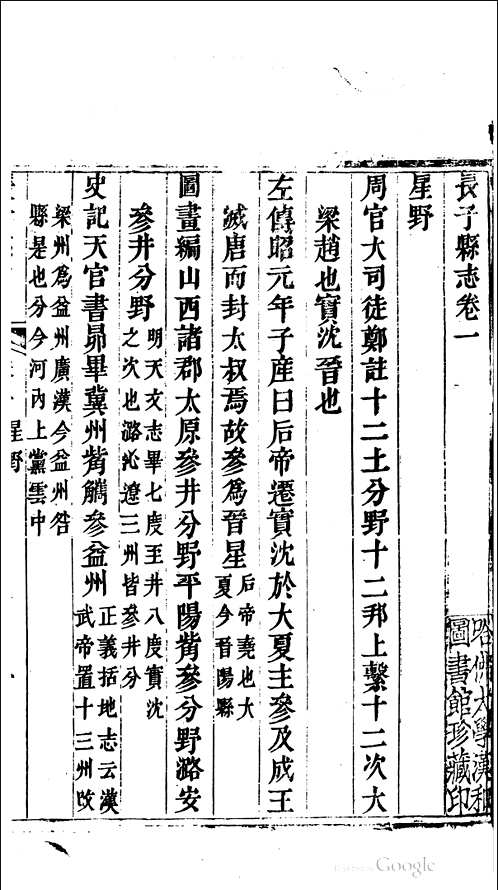 長子縣志卷一
星野
周官大司徒鄭註十二土分野十二邦上繫十二次大
梁趙也實沈晉也
左傳昭元年子產曰后帝遷實沈於大夏主參及成王
滅唐而封太叔焉故參爲晉星后帝堯也大
夏今晉陽縣
圖書編山西諸郡太原參井分野平陽觜參分野潞安
參井分野明天文志畢七度至井八度實沈
之次也潞沁遼三州皆參井分
史記天官書昴畢冀州觜觿參益州正義括地志云漢
武帝置十三州改
梁州爲益州廣漢今益州咎
縣是也分今河內上黨雲中
星野
哈佛大學漢和
圖書館珍藏印
Google